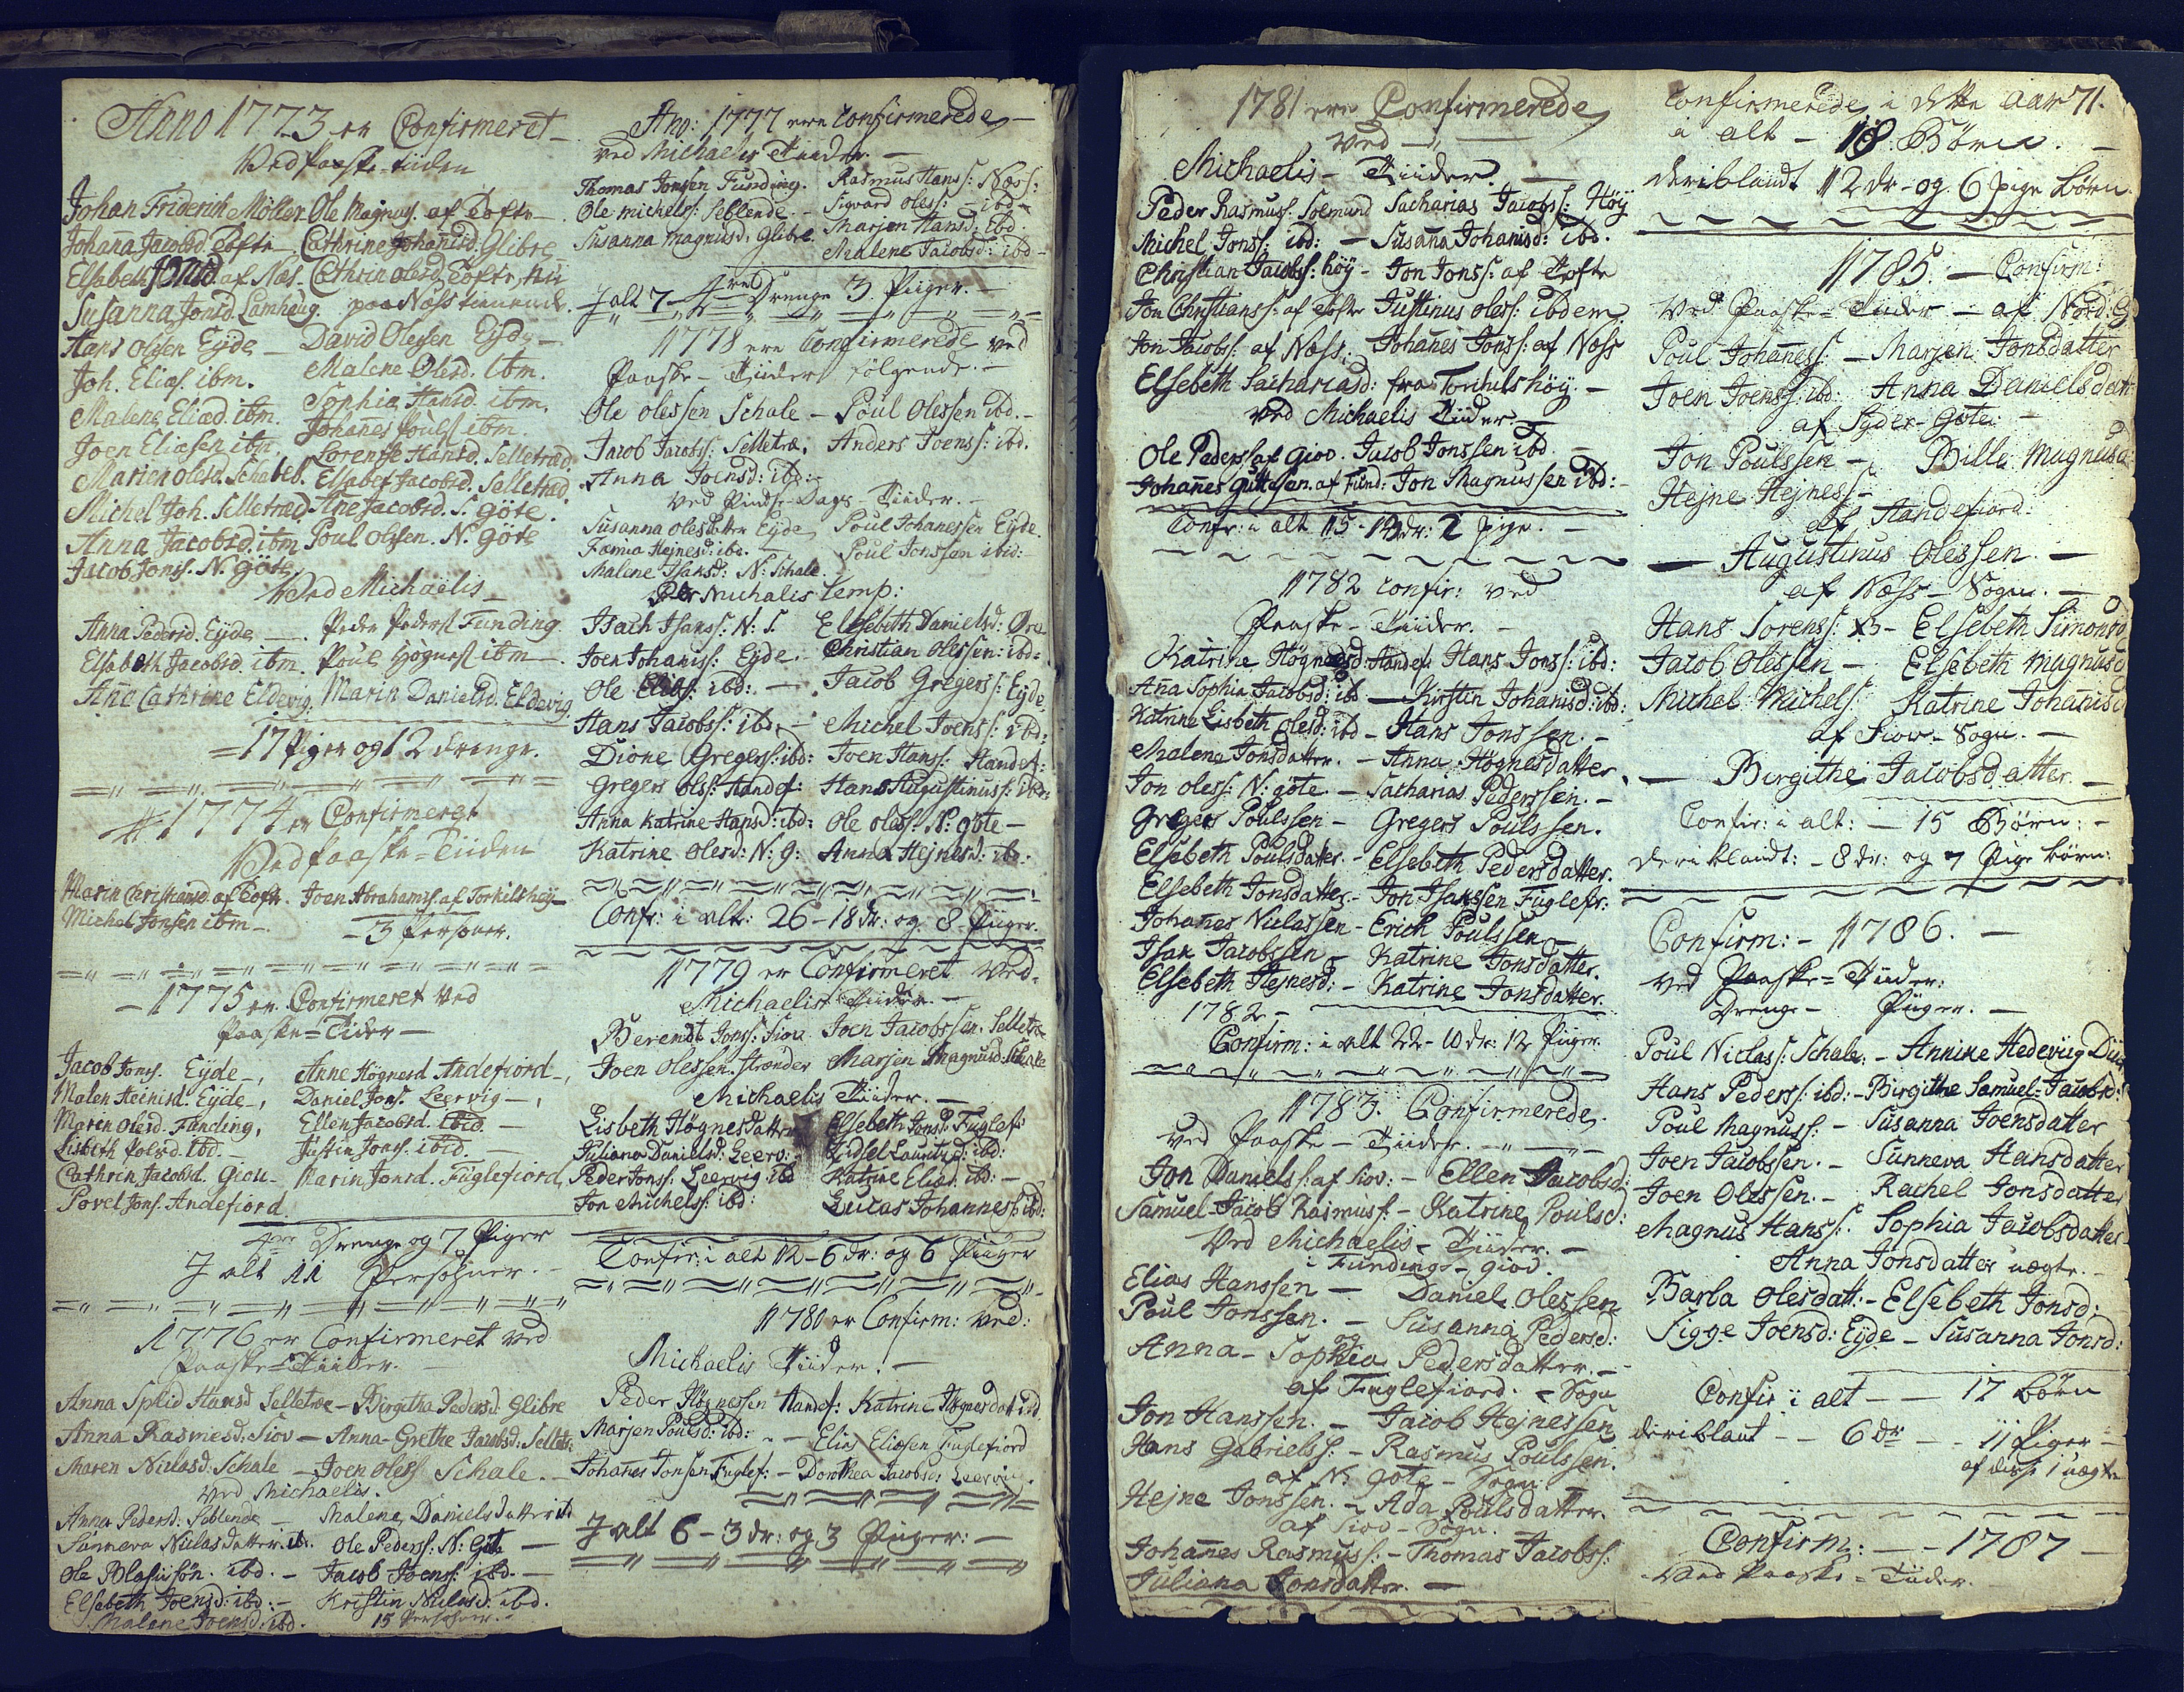 Anno 1773 er Confirmeret
Ved paaske-tiiden
Johan Friderich Möller. Ole Magnus. af Tofte
Johaña Jacobsd. Tofte Cathrine Johañisd. Glibre
Elsabeth Jonsd. af Næs. Cathrin olesd. Tofte, nu
Susanna Jonsd. Lamhaug. paa Næss tienende.
Hans Olesen Eyde David Olesen Eyde
Joh. Elias. ibm. Malene Olesd. ibm.
Malene Eliæd. ibm. Sophia Hansd. ibm.
Joen Eliasen ibm. Johanes Pouls. ibm
Marien olesd. Schaleb. Lorentse Hansd. Selletræd.
Michel Joh. Selletræd. Elsabet Jacobsd. Selletræd.
Anna Jacobsd. ibm Ane Jacobsd. S. göte.
Jacob Jons. N. Göte Poul Olesen. N. Göte
Ved Michaëlis
Anna Pedersd. Eyde Peder Peders. Funding
Elsabeth Jacobsd. ibm. Poul Högnes. ibm
Aña Cathrine Eldevig. Marin Danielsd. Eldevig.
17 Piger og 12 drenge.
1774 er Confirmeret
Ved paaske=Tiiden
Marin Christiansd. af Tofte. Joen Abrahams. af Torkilshöy
Michel Jonsen ibm 3 Personer.
1775 er Confirmeret Ved
Paaske=Tider
Jacob Jons. Eyde Anne Högnesd. Andefiord
Malen Heinisd. Eyde Daniel Jons. Leervig
Maren olesd. Funding, Ellen Jacobsd. ibid.
Lisbeth Polsd. ibd. Justin Jons. ibid.
Cathrin Jacobsd. Giou Marin Jonsd. Fuglefiord
Povel Jons. Andefiord.
4re Drenge og 7 Piger
J alt 11 Persohner.
1776 er Confirmeret ved
Paaske=Tiider.
Anna Sphid Hansd Selletræ Birgitha Pedersd. Glibre
Anna Rasmesd. Siov Anna-Grethe Jacobsd. Selletr:
Maren Niclasd. Schale Joen oless Schale.
Ved Michaelis.
Anna Pedersd: Söblende Malene Danielsdatter ib
Sunneva Niclasdatter. ib. Ole Peders: N: Göte
Ole Blasiisön. ibd. Jacob Joens: ibd.
Elsebeth Joensd: ibd: Kristin Niclasd: ibd.
Malene Joensd: ibd. 15 Persohner.
Ano: 1777 ere Confirmerede
ved Michaelis Tiider.
Thomas Jonsen Funding. Rasmus Hans: Næss:
Ole michels: Seblende. Sigvard oless: ibd
Susanna Magnusd: Glibre. Marjen Hansd: ibd.
Malene Jacobsd: ibd
J alt 7 4re Drenge 3 Piiger.
1778 ere Confirmerede ved
Paaske-Tiider følgende.
Ole olessen Schale Poul Olessen ibd.
Jacob Jacobs: Selletræ. Anders Joens: ibd.
Anna Joensd: ibd:
Ved Pinds-Dags-Tiider.
Susanna olesdatter Eyde Poul Johanessen Eyde.
Fæmia Hejnesd: ibd. Poul Jonssen ibid:
Malene Isaksd: N: Schale
Michalis temp:
Isach Isaks: N: S. Elsebeth Danielsd: Øre
Joen Johanis: Eyde. Christian olessen: ibd:
Ole Elias: ibd: Jacob Gregers: Eyde
Hans Jacobs: ibd: Michel Joens: ibd:
Dione Gregers: ibd: Joen Hans: Handef:
Gregers Ols: Handef: Hans Augustinus: ibd:
Anna Katrine Hansd: ibd: Ole oles: N: göte
Katrine Olesd: N: g: Anna Hejnesd: ib.
Confr: i alt: 26-18 dr: og 8 Piiger.
1779 er Confirmeret Ved
Michaelis Tiider.
Berendt Jons: Siou Joen Jacobssen. Selletræ
Joen Olessen. strænder Marjen Magnusd: Schale
Michaelis Tiider.
Lisbeth Högnesdatter Elsebeth Jonsd: Fuglef:
Juliana Danielsd: Leerv: Zidsel Lauritzd: ibd:
Peder Jons: Leervig ibd Katrine Eliæd: ibd:
Jon Michels: ibd: Lucas Johannes: ibd:
Confir: i alt 12-6 dr: og 6 Piiger
1780 er Confirm: Ved:
Michaelis Tiider.
Peder Högnessen Handef: Katrine Högnesdatt ibd
Marjen Poulsd: ibd: Elias Eliasen Fuglefiord
Johanes Jonsen Fuglef: Dorthea Jacobsd: Leervig.
J alt 6-3 dr: og 3 Piiger:
1781 ere Confirmerede
Ved
Michaelis-Tiider.
Peder Rasmuss. Solmund Sacharias Jacobs: Höÿ
Michel Jons: ibd: Susaña Johanisd: ibd.
Christian Jacobs: höÿ Jon Jons: af Tofte
Jon Christians: af Tofte Justinus oles: ibdem
Jon Jacobs: af Næss. Johañes Jons: af Næss
Elsebeth Sachariasd: fra Torchilshöÿ.
Ved Michaelis Tiider
Ole Peders: af Giov. Jacob Jonssen ibd
Johañes Guttesen. af Fund: Jon Magnussen ibd:
Confr: i alt 15-13 dr: 2 pige.
1782 confir: ved
Paaske-Tiider.
Katrine Högnesd: Handef: Hans Jons: ibd:
Aña Sophia Jacobsd: ibd Kirstin Johanisd: ibd:
Katrine Lisbeth olesd: ibd Hans Jonssen.
Malene Jonsdatter. Anna Högnesdatter
Jon oless: N: göte. Sacharias Pederssen.
Gregers Poulssen Gregers Poulssen.
Elsebeth Poulsdatter. Elsebeth Pedersdatter.
Elsebeth Jonsdatter. Jon Isakssen Fuglefr:
Johañes Niclassen Erich Poulssen
Isak Jacobssen Katrine Jonsdatter.
Elsebeth Hejnesd: Katrine Jonsdatter.
1782
Confirm: i alt 22-10 dr: 12 Piiger.
1783. Confirmerede.
Ved Paaske-Tiider.
Jon Daniels: af Siov: Ellen Jacobsd:
Samuel-Jacob Rasmus: Katrine Poulsd:
Ved Michaelis-Tiider.
i Funding-giov.
Elias Hanssen Daniel Olessen
Poul Jonssen. Susanna Pedersd:
og
Anna-Sophia Pedersdatter.
af Fuglefiord. Sogn
Jon Hanssen. Jacob Hejnessen
Hans Gabriels: Rasmus Poulssen.
af N: göte-Sogn
Hejne Jonssen. Ada Poulsdatter.
af Siov-Sogn.
Johañes Rasmuss: Thomas Jacobs:
Juliana Jonsdatter.
Confirmerede i dette aar 71.
i alt 18. Börn.
deriblandt 12 dr. og 6 pige börn.
1785. Confirm:
Ved Paaske=Tiider af Nord:
Poul Johañess: Marjen Jonsdatter
Joen Joens: ibd: Anna Danielsdatt
af Syder-Göte:
Jon Poulssen Bille Magnusd:
Hejne Hejness:
af Handefiord:
Augustinus Olessen.
af Næss-Sogn.
Hans Sörens: Elsebeth Simonsd
Jacob Olessen Elsebeth Magnusd
Michel Michels: Katrine Johanisd
af Siov-Sogn.
Birgithe Jacobsdatter.
Confir: i alt: 15 Börn:
deriblandt: 8 dr: og 7 Pige börn:
Confirm: 1786.
ved Paaske=Tiider:
Drenge Piiger.
Poul Niclass: Schale: Annike Hedevig
Hans Peders: ibd: Birgithe Samuel-Jacobsd:
Poul Magnuss: Susanna Joensdatter
Joen Jacobssen. Sunneva Hansdatter
Joen Olessen. Rachel Jonsdatter
Magnus Hanss: Sophia Jacobsdatter
Anna Jonsdatter uægte.
Barba Olesdatt: Elsebeth Jonsd:
Sigge Joensd: Eyde Susanna Jonsd:
Confir i alt 17 börn
deriblant 6 dr 11 Piger
af disse 1 uægte
Confirm: 1787
Ved Paaske=Tiider.